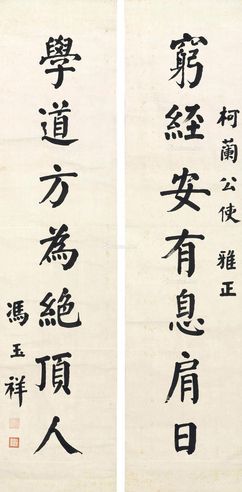 柯蘭公使 雅正
窮經安有息肩日
學道方為絕頂人
馮玉祥